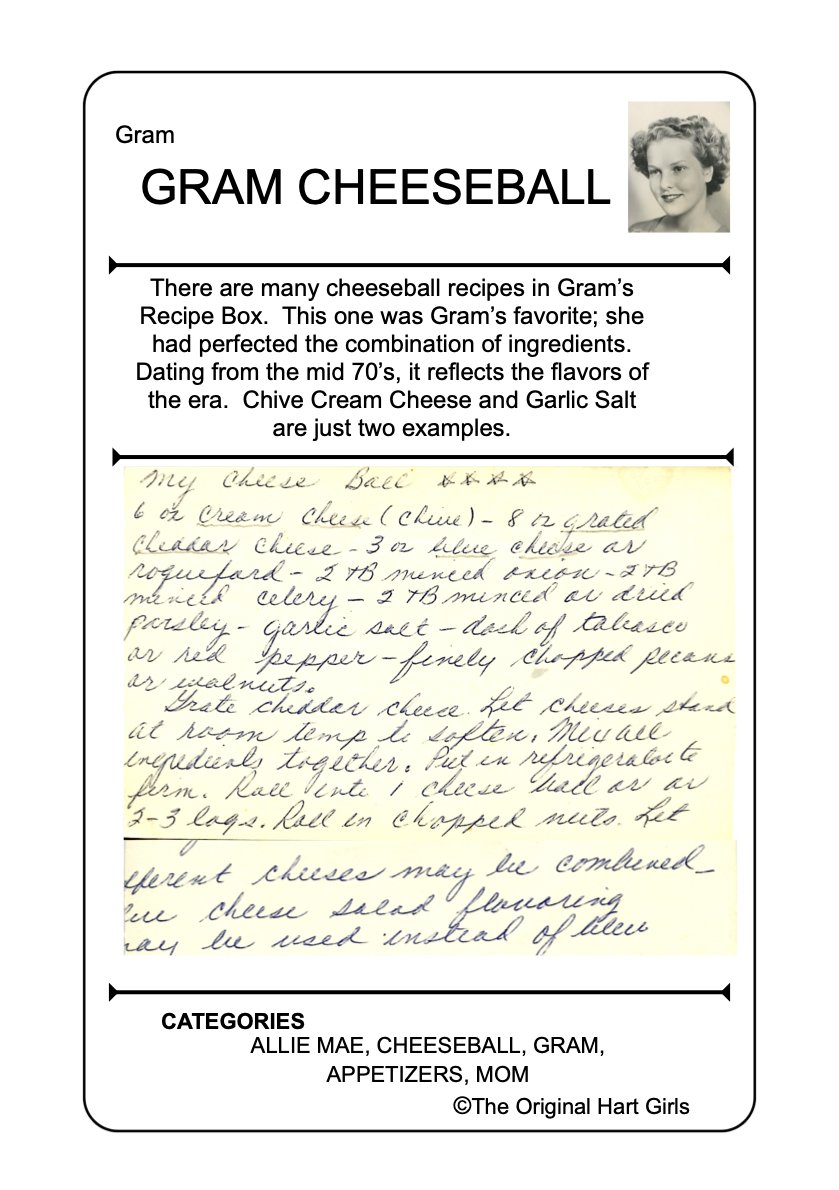 Gram
GRAM CHEESEBALL
There are many cheeseball recipes in Gram’s
Recipe Box.  This one was Gram’s favorite; she
had perfected the combination of ingredients.
Dating from the mid 70’s, it reflects the flavors of
the era.  Chive Cream Cheese and Garlic Salt
are just two examples.
My Cheese Ball ☆☆☆☆
6 oz cream cheese (chive) - 8 oz grated
cheddar cheese - 3 oz bleue cheese or
roqueford - 2 TB minced onion - 2 TB
minced celery - 2 TB minced or dried
parsley - garlic salt - dash of tabasco
or red pepper - finely chopped pecans
or walnuts.
Grate cheddar cheese. Let cheeses stand
at room temp to soften. Mix all
ingredients together. Put in refrigerator to
firm. Roll into 1 cheese ball or or
2-3 logs. Roll in chopped nuts. Let
fferent cheeses may be combined -
lue cheese salad flavoring
may be used instead of bleu
CATEGORIES
ALLIE MAE, CHEESEBALL, GRAM,
APPETIZERS, MOM
©The Original Hart Girls